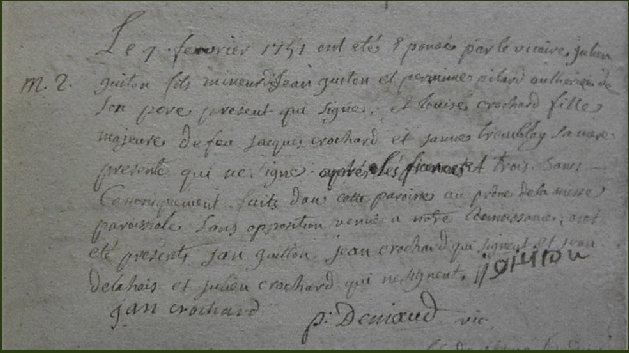 Le 9 fevrier 1751 ont eté Epousés par le vicaire, julien
m. 2. guiton fils mineur de jean guiton et perinne pilard authorisé de
son pere present qui signe, et louise crochard fille
majeure de feu jacques crochard et janne tremblay sa mere
presente qui ne signe après les fiances et trois bans
canoniquement faits dans cette paroisse au prône de la messe
paroissiale sans opposition venuë a notre connoissance, ont
eté presents jan guitton jean crochard qui signent et jean
delahais et julien crochard qui ne signent. j guiton
jan crochard p: Deniaud vic.